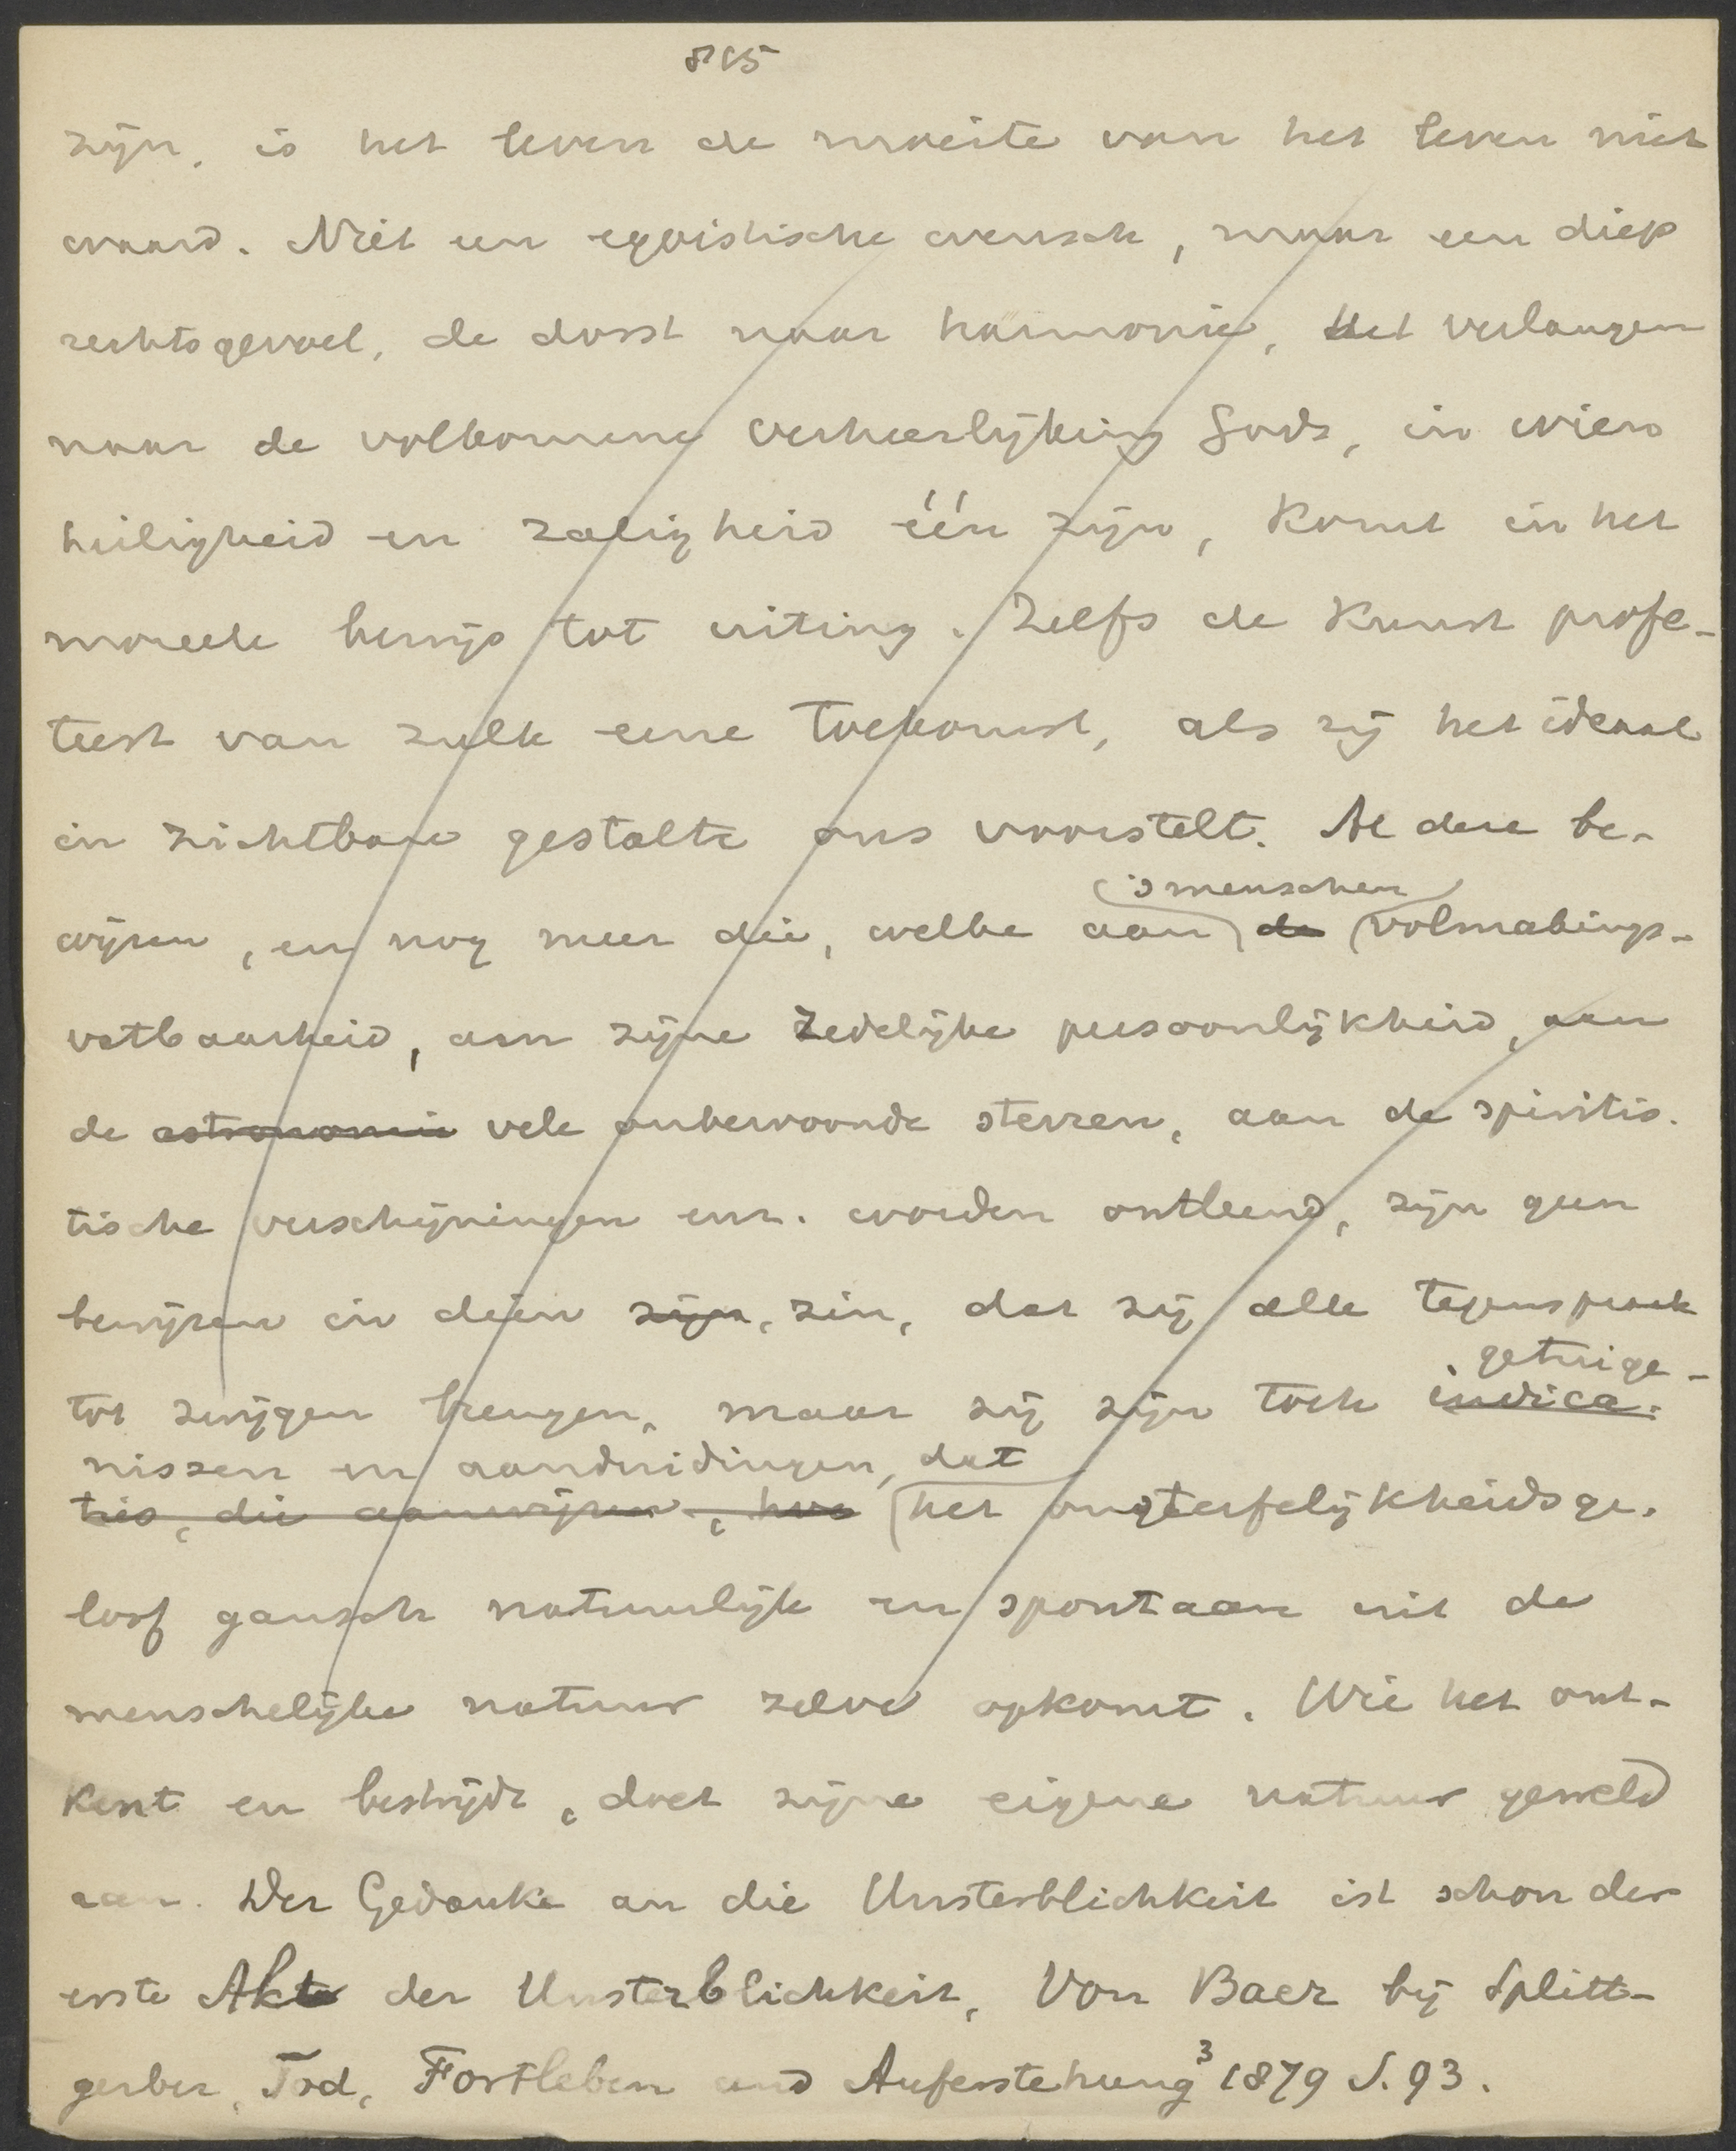 815
zijn, is het leven de moeite van het leven niet
waard. Niet een egoistische wensch, maar een diep
rechtsgevoel, de dorst naar harmonie, het verlangen
naar de volkomene verheerlijking Gods, in wien
heiligheid en zaligheid één zijn, komt in het
moreele bewijs tot uiting. Zelfs de kunst profe-
teert van zulk eene toekomst, als zij het ideaal
in zichtbare gestalte ons voorstelt. Al deze be-
's menschen
wijzen, en nog meer die, welke aan de volmakings-
vatbaarheid, aan zijne zedelijke persoonlijkheid, aan
de astronomie vele onbewoonde sterren, aan de spiritis-
tische verschijningen enz. worden ontleend, zijn geen
bewijzen in dien zijn, zin, dat zij alle tegenspraak
getuige-
tot zwijgen brengen, maar zij zijn toch indica-
nissen en aanduidingen, dat
ties, die aanwijzen, hoe het onsterfelijkheidsge-
loof gansch natuurlijk en spontaan uit de
menschelijke natuur zelve opkomt. Wie het ont-
kent en bestrijdt, doet zijne eigene natuur geweld
aan. Der Gedanke an die Unsterblichkeit ist schon der
erste Akt der Unsterblichkeit, Von Baer bij Splitt-
gerber, Tod, Fortleben und Auferstehung³ 1879 S. 93.